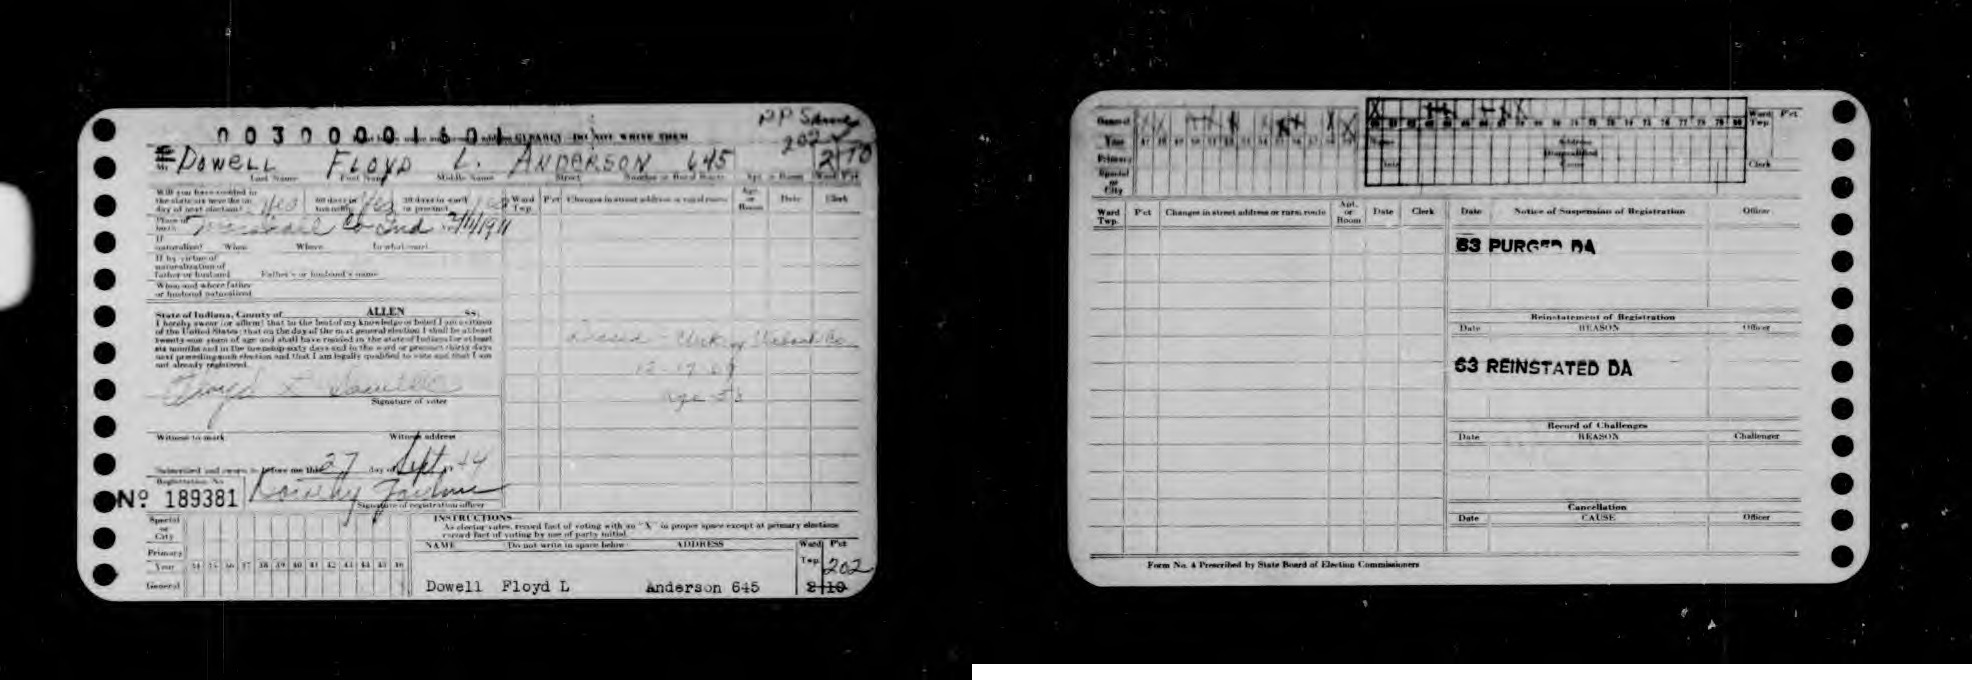 PP Same
202
00300001601 CLEARLY—DO NOT WRITE THEM
Dowell Floyd L. Anderson 645 2 10
Last Name First Name Middle Name Street Number or Rural Route Apt. or Room Ward Pct
Will you have resided in the state six months on day of next election? Yes 60 days in township Yes 30 days in ward or precinct Yes
Ward Twp. P'ct Changes in street address or rural route Apt. or Room Date Clerk
Place of birth Marshall Co Ind 2/11/1911
If naturalized When Where In what court
If by virtue of naturalization of father or husband Father's or husband's name
When and where father or husband naturalized
State of Indiana, County of ALLEN ss:
I hereby swear (or affirm) that to the best of my knowledge or belief I am a citizen
of the United States; that on the day of the next general election I shall be at least
twenty-one years of age and shall have resided in the state of Indiana for at least
six months and in the township sixty days and in the ward or precinct thirty days
next preceding such election and that I am legally qualified to vote and that I am
not already registered.
Floyd L Dowell
Signature of voter
Wabash Co
Age
Witness to mark Witness address
Subscribed and sworn to before me this 27 day of Sept 44
Registration No.
Nº 189381 Dorothy
Signature of registration officer
Special or City
Primary
Year 34 35 36 37 38 39 40 41 42 43 44 45 46
General
INSTRUCTIONS—
As elector votes, record fact of voting with an "X" in proper space except at primary elections
record fact of voting by use of party initial.
NAME (Do not write in space below) ADDRESS Ward Twp. P'ct
202
Dowell Floyd L Anderson 645 2 10
General
Year 47 48 49 50 51 52 53 54 55 56 57 58 59
Primary
Special or City
60 61 62 63 64 65 66 67 68 69 70 71 72 73 74 75 76 77 78 79 80
Name Address
Disqualified
Date Cause
Ward Twp. P'ct
Clerk
Ward Twp. P'ct Changes in street address or rural route Apt. or Room Date Clerk
Date Notice of Suspension of Registration Officer
63 PURGED DA
Reinstatement of Registration
Date REASON Officer
63 REINSTATED DA
Record of Challenges
Date REASON Challenger
Cancellation
Date CAUSE Officer
Form No. 4 Prescribed by State Board of Election Commissioners